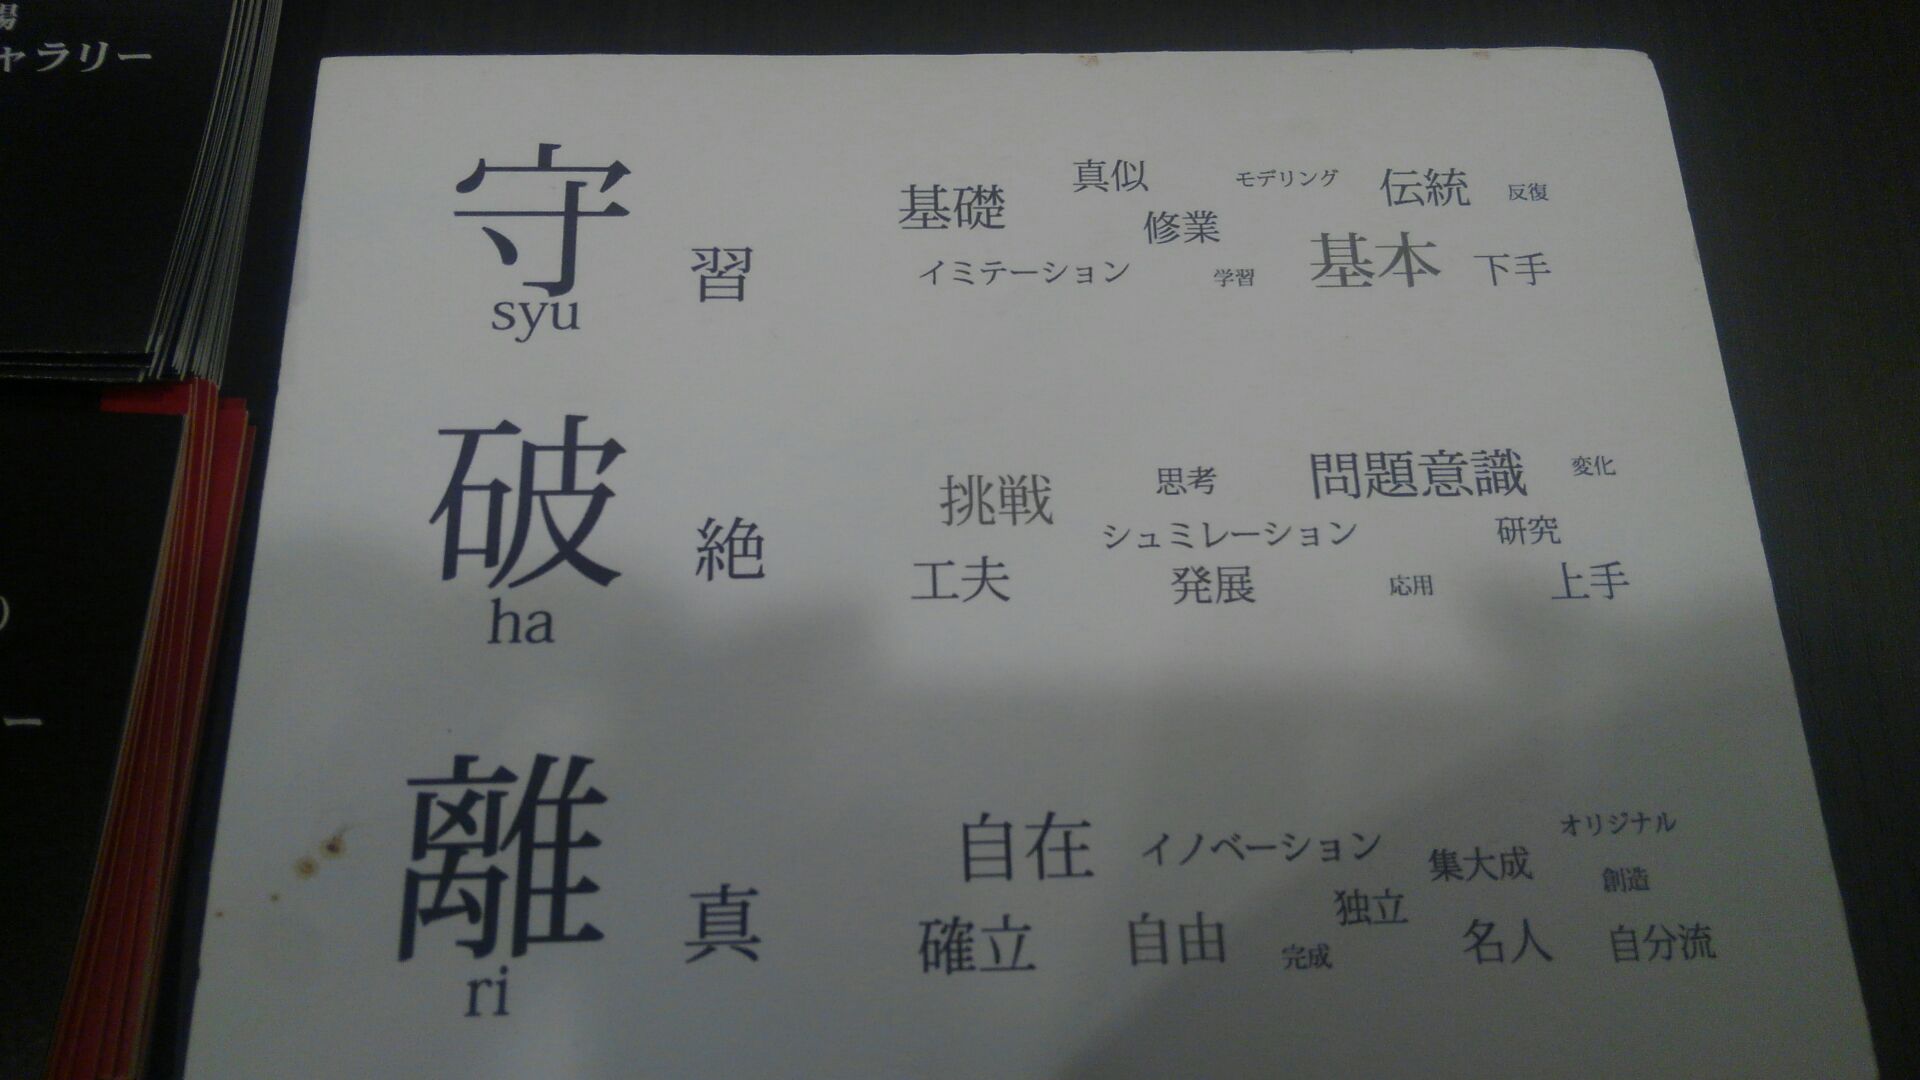 場
ャラリー
）
ー
守
syu
習
基礎 真似 モデリング 伝統 反復
修業
イミテーション 学習 基本 下手
破
ha
絶
挑戦 思考 問題意識 変化
シュミレーション 研究
工夫 発展 応用 上手
離
ri
真
自在 イノベーション 集大成 オリジナル
独立 創造
確立 自由 完成 名人 自分流